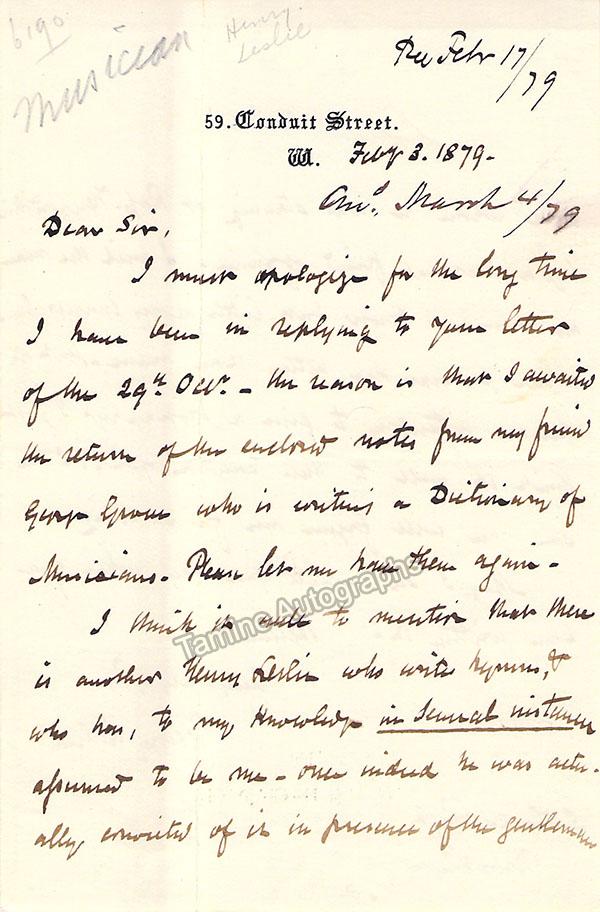 6190
Musician
Henry
Leslie
Rec Febr 17/79
59. Conduit Street.
W. Feby 3. 1879.
Ansd. March 4/79
Dear Sir,
I must apologize for the long time
I have been in replying to your letter
of the 29th Octr. - the reason is that I awaited
the return of the enclosed notes from my friend
George Grove who is writing a Dictionary of
Musicians. Please let me have them again.
I think it well to mention that there
is another Henry Leslie who writes hymns, &
who has, to my knowledge in several instances
assumed to be me - once indeed he was actu-
ally convicted of it in presence of the gentleman
Tamino Autographs